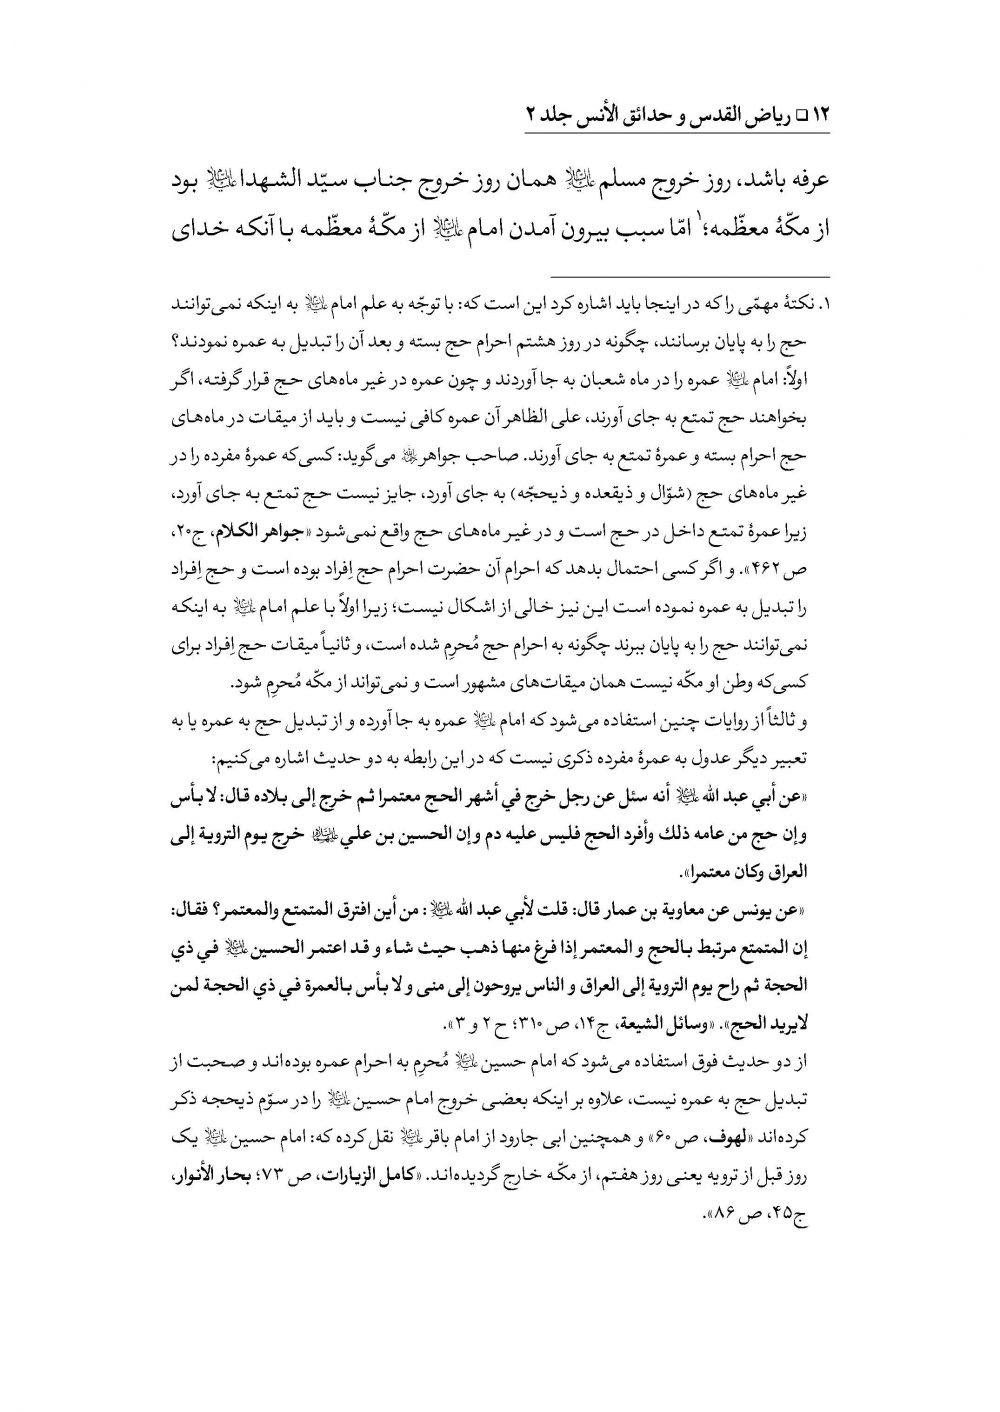 ۱۲ □ ریاض القدس و حدائق الأنس جلد ۲
عرفه باشد، روز خروج مسلم علیه‌السلام همان روز خروج جناب سیّد الشهدا علیه‌السلام بود
از مکّهٔ معظّمه؛۱ امّا سبب بیرون آمدن امام علیه‌السلام از مکّهٔ معظّمه با آنکه خدای
۱. نکتهٔ مهمّی را که در اینجا باید اشاره کرد این است که: با توجّه به علم امام علیه‌السلام به اینکه نمی‌توانند
حج را به پایان برسانند، چگونه در روز هشتم احرام حج بسته و بعد آن را تبدیل به عمره نمودند؟
اولاً: امام علیه‌السلام عمره را در ماه شعبان به جا آوردند و چون عمره در غیر ماه‌های حج قرار گرفته، اگر
بخواهند حج تمتع به جای آورند، علی الظاهر آن عمره کافی نیست و باید از میقات در ماه‌های
حج احرام بسته و عمرهٔ تمتع به جای آورند. صاحب جواهر رحمه‌الله می‌گوید: کسی‌که عمرهٔ مفرده را در
غیر ماه‌های حج (شوّال و ذیقعده و ذیحجّه) به جای آورد، جایز نیست حج تمتع به جای آورد،
زیرا عمرهٔ تمتع داخل در حج است و در غیر ماه‌های حج واقع نمی‌شود «جواهر الکلام، ج۲۰،
ص ۴۶۲». و اگر کسی احتمال بدهد که احرام آن حضرت احرام حج اِفراد بوده است و حج اِفراد
را تبدیل به عمره نموده است این نیز خالی از اشکال نیست؛ زیرا اولاً با علم امام علیه‌السلام به اینکه
نمی‌توانند حج را به پایان ببرند چگونه به احرام حج مُحرِم شده است، و ثانیاً میقات حج اِفراد برای
کسی‌که وطن او مکّه نیست همان میقات‌های مشهور است و نمی‌تواند از مکّه مُحرِم شود.
و ثالثاً از روایات چنین استفاده می‌شود که امام علیه‌السلام عمره به جا آورده و از تبدیل حج به عمره یا به
تعبیر دیگر عدول به عمرهٔ مفرده ذکری نیست که در این رابطه به دو حدیث اشاره می‌کنیم:
«عن أبي عبد الله علیه‌السلام أنه سئل عن رجل خرج في أشهر الحج معتمرا ثم خرج إلى بلاده قال: لا بأس
وإن حج من عامه ذلك وأفرد الحج فليس عليه دم وإن الحسين بن علي علیهماالسلام خرج يوم التروية إلى
العراق وكان معتمرا».
«عن يونس عن معاوية بن عمار قال: قلت لأبي عبد الله علیه‌السلام: من أين افترق المتمتع والمعتمر؟ فقال:
إن المتمتع مرتبط بالحج و المعتمر إذا فرغ منها ذهب حيث شاء و قد اعتمر الحسين علیه‌السلام في ذي
الحجة ثم راح يوم التروية إلى العراق و الناس يروحون إلى منى و لا بأس بالعمرة في ذي الحجة لمن
لايريد الحج». «وسائل الشيعة، ج۱۴، ص ۳۱۰؛ ح ۲ و ۳».
از دو حدیث فوق استفاده می‌شود که امام حسین علیه‌السلام مُحرِم به احرام عمره بوده‌اند و صحبت از
تبدیل حج به عمره نیست، علاوه بر اینکه بعضی خروج امام حسین علیه‌السلام را در سوّم ذیحجه ذکر
کرده‌اند «لهوف، ص ۶۰» و همچنین ابی جارود از امام باقر علیه‌السلام نقل کرده که: امام حسین علیه‌السلام یک
روز قبل از ترویه یعنی روز هفتم، از مکّه خارج گردیده‌اند. «کامل الزیارات، ص ۷۳؛ بحار الأنوار،
ج۴۵، ص ۸۶».